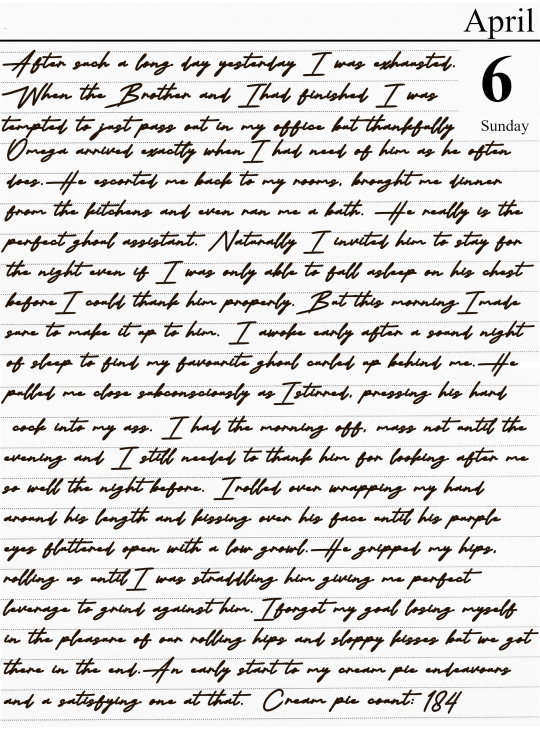 April
6
Sunday
After such a long day yesterday I was exhausted.
When the Brother and I had finished I was
tempted to just pass out in my office but thankfully
Omega arrived exactly when I had need of him as he often
does. He escorted me back to my rooms, brought me dinner
from the kitchens and even ran me a bath. He really is the
perfect ghoul assistant. Naturally I invited him to stay for
the night even if I was only able to fall asleep on his chest
before I could thank him properly. But this morning I made
sure to make it up to him. I awoke early after a sound night
of sleep to find my favourite ghoul curled up behind me. He
pulled me close subconsciously as I stirred, pressing his hard
cock into my ass. I had the morning off, mass not until the
evening and I still needed to thank him for looking after me
so well the night before. I rolled over wrapping my hand
around his length and kissing over his face until his purple
eyes fluttered open with a low growl. He gripped my hips,
rolling us until I was straddling him giving me perfect
leverage to grind against him. I forgot my goal losing myself
in the pleasure of our rolling hips and sloppy kisses but we got
there in the end. An early start to my cream pie endeavours
and a satisfying one at that. Cream pie count: 184